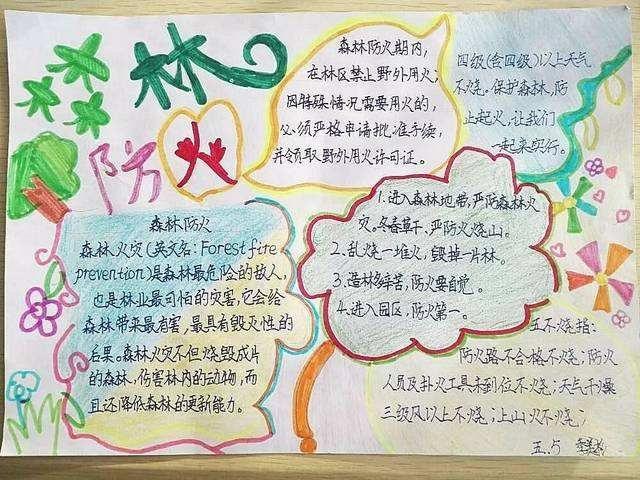 森林防火
森林防火期内,
在林区禁止野外用火;
因特殊情况需要用火的,
必须严格申请批准手续,
并领取野外用火许可证。
四级(含四级)以上天气
不烧。保护森林,防
止起火,让我们
一起来实行。
森林防火
森林火灾(英文名:Forest fire
prevention)是森林最危险的敌人,
也是林业最可怕的灾害,它会给
森林带来最有害,最具有毁灭性的
后果。森林火灾不但烧毁成片
的森林,伤害林内的动物,而
且还降低森林的更新能力。
1.进入森林地带,严防森林火
灾。冬春草干,严防火烧山。
2.乱烧一堆火,毁掉一片林。
3.造林多辛苦,防火要自觉。
4.进入园区,防火第一。
五不烧指:
防火路不合格不烧;防火
人员及扑火工具未到位不烧;天气干燥
三级风以上不烧;上山火不烧;
五.5